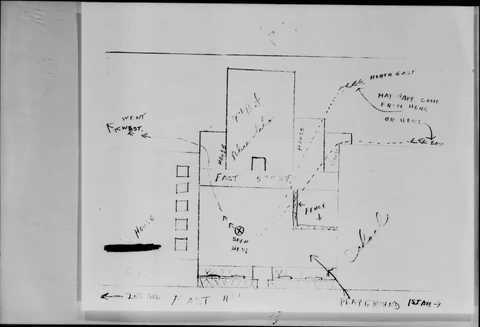 NORTH EAST
MAY HAVE COME
FROM HERE
OR HERE
EAST
WENT
WEST.
HOUSE
HOUSE
EAST STREET
FENCE
HOUSE
SEEN
HERE
School
PLAYGROUND
1ST AVE
2ND AVE